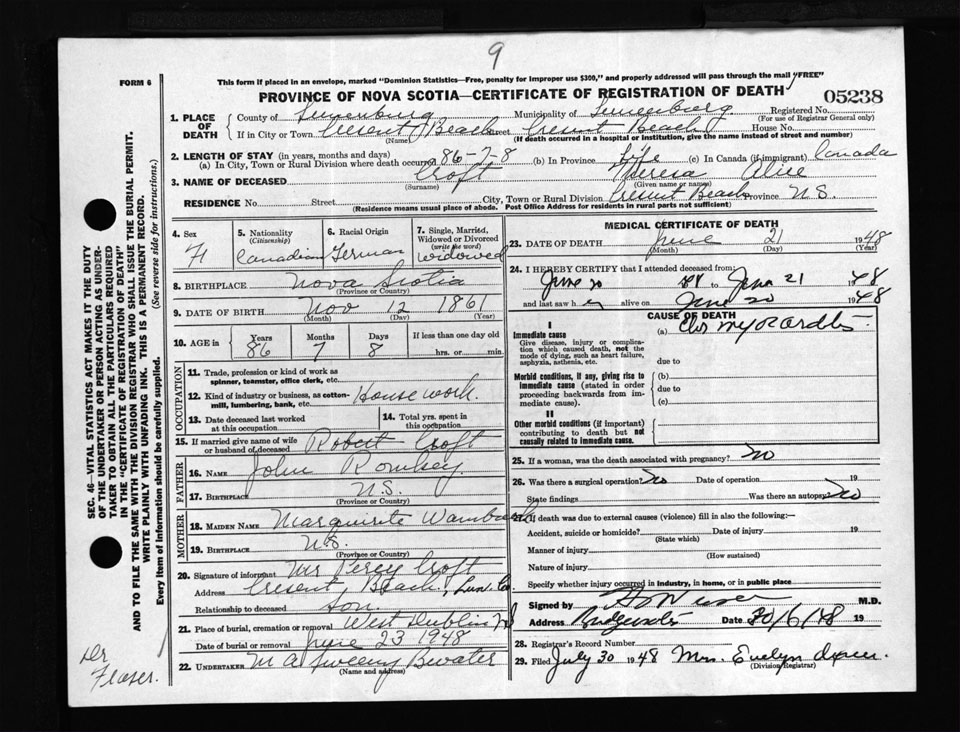 9
FORM 6
This form if placed in an envelope, marked "Dominion Statistics—Free, penalty for improper use $300," and properly addressed will pass through the mail "FREE"
PROVINCE OF NOVA SCOTIA—CERTIFICATE OF REGISTRATION OF DEATH
05238
1. PLACE OF DEATH County of Lunenburg Municipality of Lunenburg Registered No.
(For use of Registrar General only)
If in City or Town Cresent Beach Street Cresent Beach House No.
(Name) (If death occurred in a hospital or institution, give the name instead of street and number)
2. LENGTH OF STAY (in years, months and days)
(a) In City, Town or Rural Division where death occurred 86-7-8 (b) In Province Life (c) In Canada (if immigrant) Canada
3. NAME OF DECEASED Croft Theresa Alice
(Surname) (Given name or names)
RESIDENCE No. Street City, Town or Rural Division Cresent Beach Province N.S.
(Residence means usual place of abode. Post Office Address for residents in rural parts not sufficient)
4. Sex F
5. Nationality (Citizenship) Canadian
6. Racial Origin German
7. Single, Married, Widowed or Divorced (write the word) Widowed
8. BIRTHPLACE Nova Scotia
(Province or Country)
9. DATE OF BIRTH Nov 12 1861
(Month) (Day) (Year)
10. AGE in Years 86 Months 7 Days 8 If less than one day old hrs. or min.
OCCUPATION
11. Trade, profession or kind of work as spinner, teamster, office clerk, etc.
12. Kind of industry or business, as cotton-mill, lumbering, bank, etc. Housework.
13. Date deceased last worked at this occupation
14. Total yrs. spent in this occupation
15. If married give name of wife or husband of deceased Robert Croft
FATHER
16. NAME John Romkey
17. BIRTHPLACE N.S.
(Province or Country)
MOTHER
18. MAIDEN NAME Marguirite
19. BIRTHPLACE N.S.
(Province or Country)
20. Signature of informant Mr Percy Croft
Address Cresent Beach, Lun. Co.
Relationship to deceased son.
21. Place of burial, cremation or removal West Dublin
Date of burial or removal June 23 1948
22. UNDERTAKER M A Sweeny Bwater
(Name and address)
MEDICAL CERTIFICATE OF DEATH
23. DATE OF DEATH June 21 1948
(Month) (Day)
24. I HEREBY CERTIFY that I attended deceased from:
June 20 48 to June 21 1948
and last saw h alive on June 20 1948
CAUSE OF DEATH
I
Immediate cause (a) Chr myocardtis
Give disease, injury or complication which caused death, not the mode of dying, such as heart failure, asphyxia, asthenia, etc.
due to
Morbid conditions, if any, giving rise to immediate cause (stated in order proceeding backwards from immediate cause).
(b)
due to
(c)
II
Other morbid conditions (if important) contributing to death but not causally related to immediate cause.
25. If a woman, was the death associated with pregnancy? No
26. Was there a surgical operation? No Date of operation 19
State findings Was there an autopsy? No
27. If death was due to external causes (violence) fill in also the following:—
Accident, suicide or homicide? Date of injury 19
(State which)
Manner of injury
(How sustained)
Nature of injury
Specify whether injury occurred in industry, in home, or in public place
Signed by M.D.
Address Date 30/6/48 19
28. Registrar's Record Number
29. Filed July 30 1948 Mrs. Evelyn
(Division Registrar)
SEC. 46—VITAL STATISTICS ACT MAKES IT THE DUTY OF THE UNDERTAKER OR PERSON ACTING AS UNDERTAKER TO OBTAIN ALL THE PARTICULARS REQUIRED IN THE "CERTIFICATE OF REGISTRATION OF DEATH" AND TO FILE THE SAME WITH THE DIVISION REGISTRAR WHO SHALL ISSUE THE BURIAL PERMIT.
WRITE PLAINLY WITH UNFADING INK. THIS IS A PERMANENT RECORD.
Every item of Information should be carefully supplied. (See reverse side for instructions.)
Dr
Fraser.